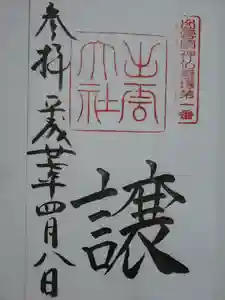 出雲國神仏霊場第一番
出雲
大社
譲
参拝 平成廿年四月八日